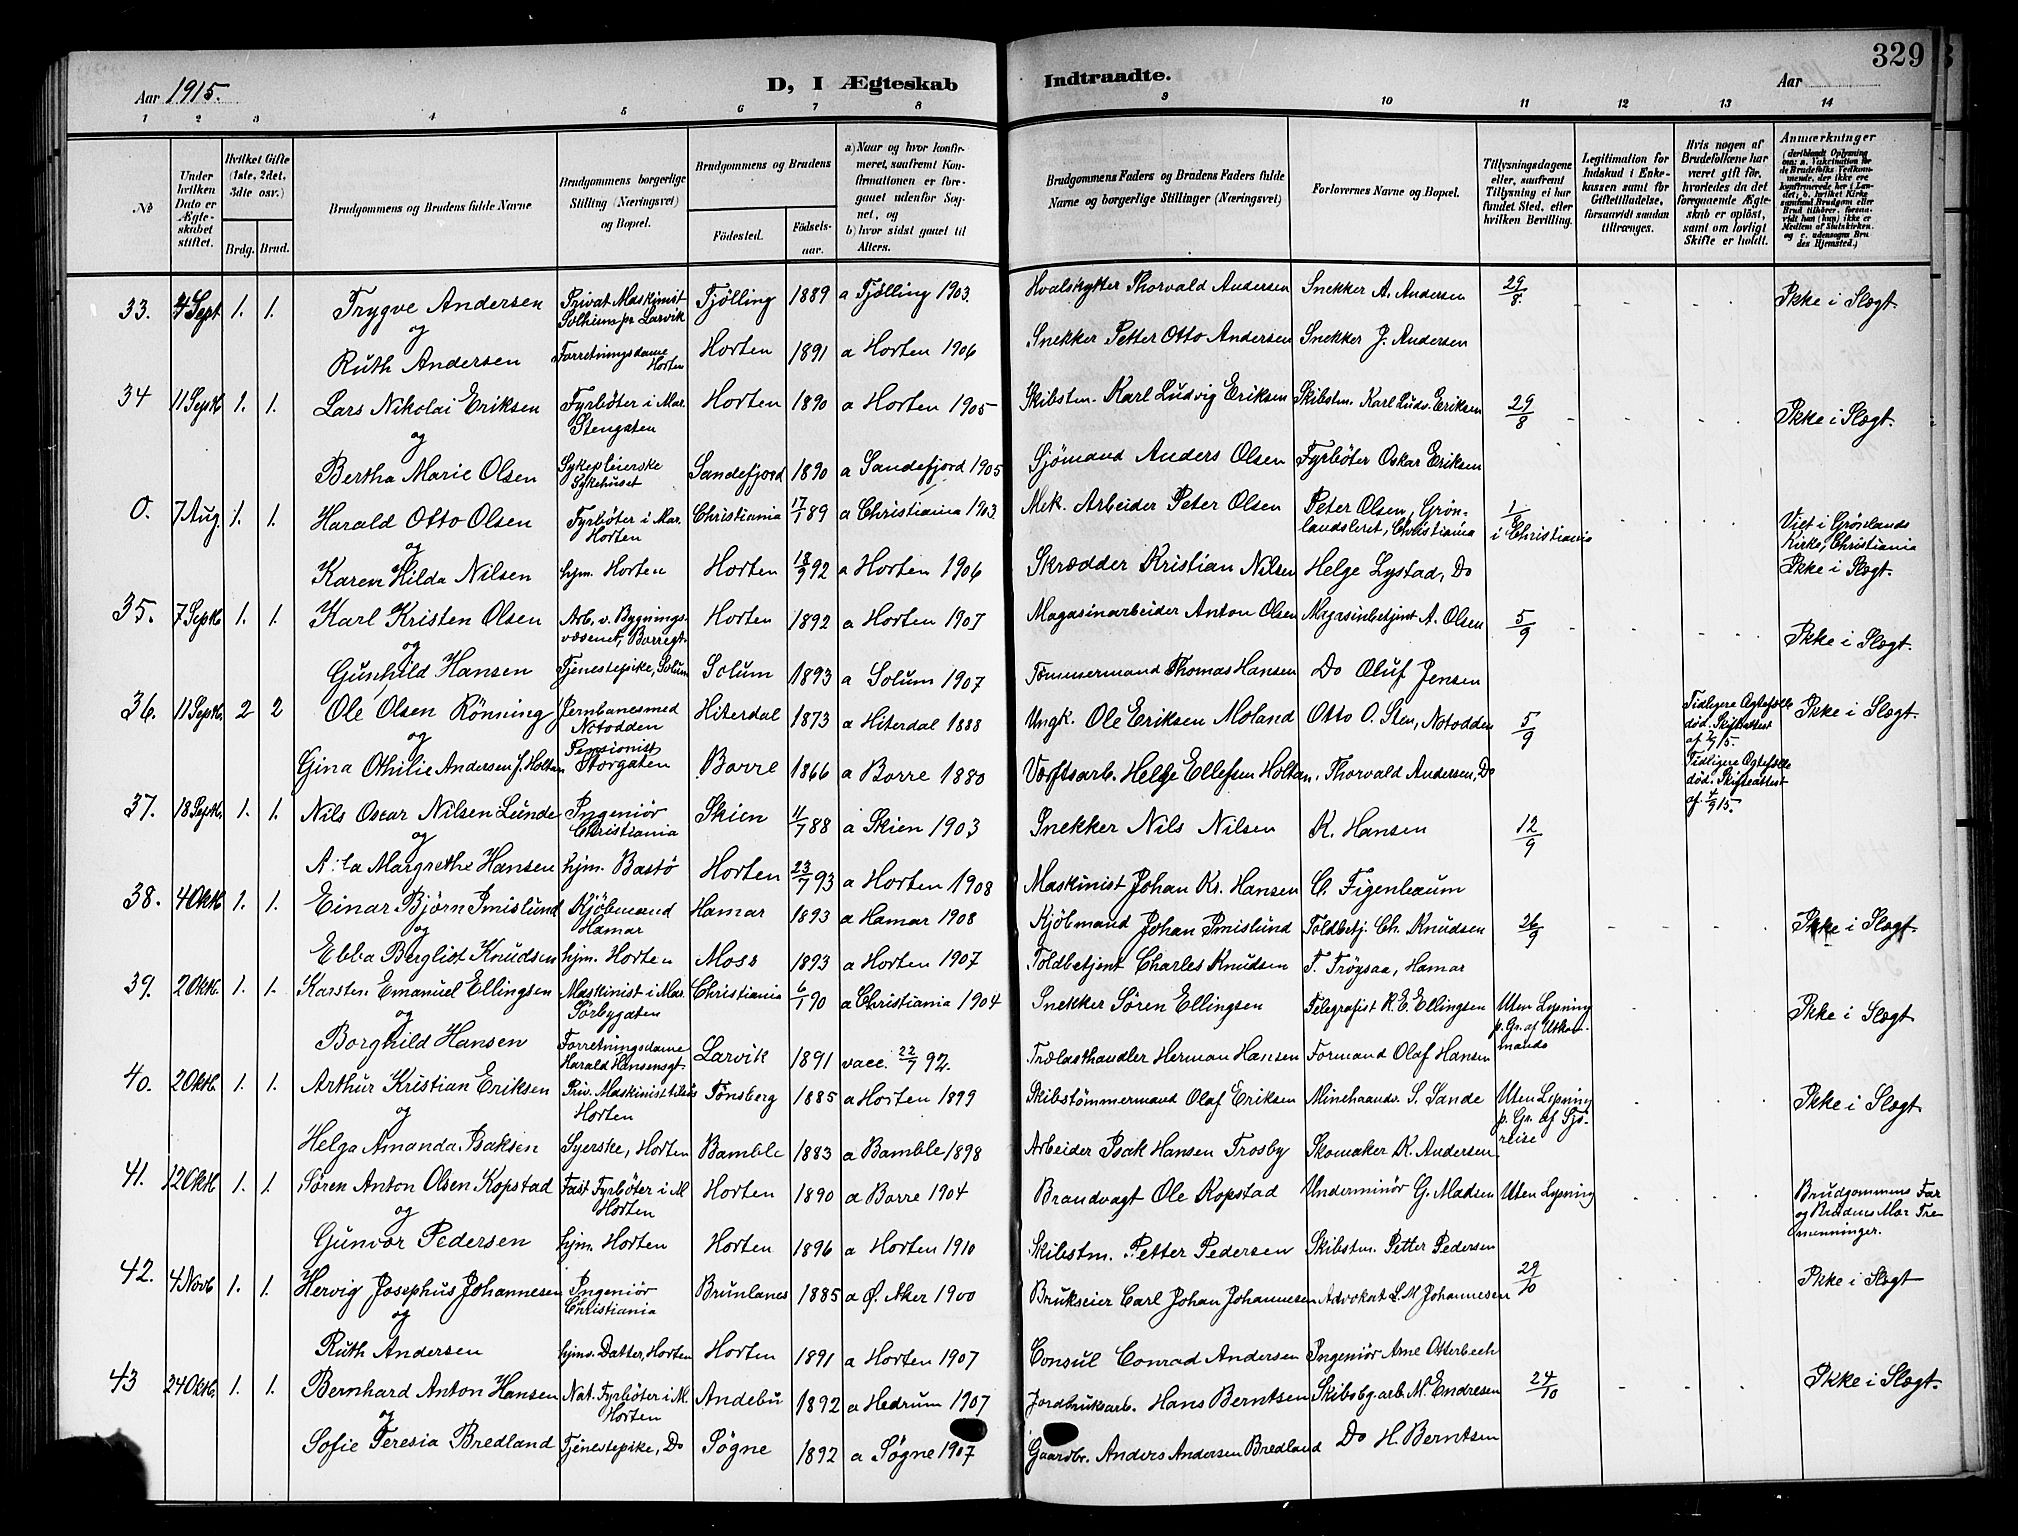 329
Aar 1915.
D, I Ægteskab Indtraadte.
Aar
1 2 3 4 5 6 7 8 9 10 11 12 13 14
№
Under hvilken Dato er Ægteskabet stiftet.
Hvilket Gifte (1ste, 2det, 3die osv.)
Brdg. Brud.
Brudgommens og Brudens fulde Navne
Brudgommens borgerlige Stilling (Næringsvei) og Bopæl.
Brudgommens og Brudens
Fødested. Fødselsaar.
a) Naar og hvor konfirmeret, saafremt Konfirmationen er foregaaet udenfor Sognet, og
b) hvor sidst gaaet til Alters.
Brudgommens Faders og Brudens Faders fulde Navne og borgerlige Stillinger (Næringsvei)
Forlovernes Navne og Bopæl.
Tillysningsdagene eller, saafremt Tillysning ei har fundet Sted, efter hvilken Bevilling.
Legitimation for Indskud i Enkekassen samt for Giftetilladelse, forsaavidt saadan tiltrænges.
Hvis nogen af Brudefolkene har været gift før, hvorledes da det foregaaende Ægteskab er opløst, samt om lovligt Skifte er holdt.
Anmærkninger (deriblandt Oplysning om: a. Vakcination for de Brudefolks Vedkommende, der ikke ere konfirmerede her i Landet, b. hvilket Kirkesamfund Brudgom eller Brud tilhører, forsaavidt han (hun) ikke er Medlem af Statskirken, og c. udensogns Brudes Hjemsted.)
33. 4 Sept 1. 1. Trygve Andersen Privat Maskinist Solheim pr Larvik Tjølling 1889 a Tjølling 1903. Hvalskytter Thorvald Andersen Snekker A. Andersen 29/8 Ikke i Slægt.
og
Ruth Andersen Forretningsdame Horten Horten 1891 a Horten 1906 Snekker Petter Otto Andersen Snekker J. Andersen
34 11 Septb 1. 1. Lars Nikolai Eriksen Fyrbøter i Mar. Stengaten Horten 1890 a Horten 1905 Skibstm. Karl Ludvig Eriksen Skibstm. Karl Ludv. Eriksen 29/8 Ikke i Slægt.
og
Bertha Marie Olsen Sykepleierske Sykehuset Sandefjord 1890 a Sandefjord 1905 Sjømand Anders Olsen Fyrbøter Oskar Eriksen
0. 7 Aug. 1. 1. Harald Otto Olsen Fyrbøter i Mar. Horten Christiania 17/1 89 a Christiania 1903 Mek. Arbeider Peter Olsen Peter Olsen, Grønlandsleret, Christiania 1/ i Christiania Viet i Grønlands Kirke, Christiania
og
Karen Hilda Nilsen hjm. Horten Horten 18/9 92 a Horten 1906 Skrædder Kristian Nilsen Helge Lystad, Do Ikke i Slægt.
35. 7 Septb 1. 1. Karl Kristen Olsen Arb. v. Bygningsvæsenet, Borregt. Horten 1892 a Horten 1907 Magasinarbeider Anton Olsen Magasinbetjent A. Olsen 5/9 Ikke i Slægt.
og
Gunhild Hansen Tjenestepike, Solum Solum 1893 a Solum 1907 Tømmermand Thomas Hansen Do Oluf Jensen
36. 11 Septb. 2 2 Ole Olsen Rönning Jernbanesmed Notodden Hiterdal 1873 a Hiterdal 1888 Ungk. Ole Eriksen Moland Otto O. Sten, Notodden 5/9 Tidligere Egtefælle død. Skifteattest af 15. Ikke i Slægt.
og
Gina Othilie Andersen f. Holtan Pensionist Storgaten Borre 1866 a Borre 1880 Værftsarb. Helge Ellefsen Holtan, Thorvald Andersen, Do Tidligere Egtefælle død. Skifteattest af 4/9 15.
37. 18 Septb. 1. 1. Nils Oscar Nilsen Lunde Ingeniør Christiania Skien 11/7 88 a Skien 1903 Snekker Nils Nilsen K. Hansen 12/9
og
Margrethe Hansen hjm. Bastø Horten 23/7 93 a Horten 1908 Maskinist Johan Kr. Hansen C. Figenbaum
38. 4 Oktb 1. 1. Einar Bjørn Imislund Kjøbmand Hamar Hamar 1893 a Hamar 1908 Kjøbmand Johan Imislund Toldbetj. Ch. Knudsen 26/9 Ikke i Slægt.
og
Ebba Bergliot Knudsen hjm. Horten Moss 1893 a Horten 1907 Toldbetjent Charles Knudsen T. Trøysaa, Hamar
39. 2 Oktb. 1. 1. Karsten Emanuel Ellingsen Maskinist i Mar. Sørbygaten Christiania 6/1 90 a Christiania 1904 Snekker Søren Ellingsen Telegrafist R. E. Ellingsen Uten Lysning p. Gr. af Utkommando Ikke i Slægt
og
Borghild Hansen Forretningsdame Harald Hansensgt. Larvik 1891 vacc. 22/7 92. Trælasthandler Herman Hansen Formand Olaf Hansen
40. 2 Oktb. 1. 1. Arthur Kristian Eriksen Priv. Maskinist tilsøs Horten Tønsberg 1885 a Horten 1899 Skibstømmermand Olaf Eriksen Minehaandv. S. Sande Uten Lysning p. Gr. af Sjøreise Ikke i Slægt
og
Helga Amanda Isaksen Syerske, Horten Bamble 1883 a Bamble 1898 Arbeider Isak Hansen Trosby Skomaker K. Andersen
41. 12 Oktb 1. 1. Søren Anton Olsen Kopstad Fast Fyrbøter i M Horten Horten 1890 a Borre 1904 Brandvagt Ole Kopstad Underminör G. Madsen Uten Lysning Brudgommens Far og Brudens Mor Tremenninger.
og
Gunvor Pedersen hjm. Horten Horten 1896 a Horten 1910 Skibstm. Petter Pedersen Skibstm. Petter Pedersen
42. 4 Novb 1. 1. Hervig Josephus Johannesen Ingeniør Christiania Brunlanes 1885 a Ø. Aker 1900 Brukseier Carl Johan Johannesen Advokat L. M Johannesen 29/10 Ikke i Slægt
og
Ruth Andersen hjmv. Datter, Horten Horten 1891 a Horten 1907 Consul Conrad Andersen Ingeniør Arne Otterbech
43 24 Oktb. 1. 1. Bernhard Anton Hansen Nat. Fyrbøter i M. Horten Andebu 1892 a Hedrum 1907 Jordbruksarb. Hans Berntsen Skibsbg.arb. M. Endresen 24/10 Ikke i Slægt.
og
Sofie Teresia Bredland Tjenestepike, Do Søgne 1892 a Søgne 1907 Gaardbr. Anders Andersen Bredland Do H. Berntsen